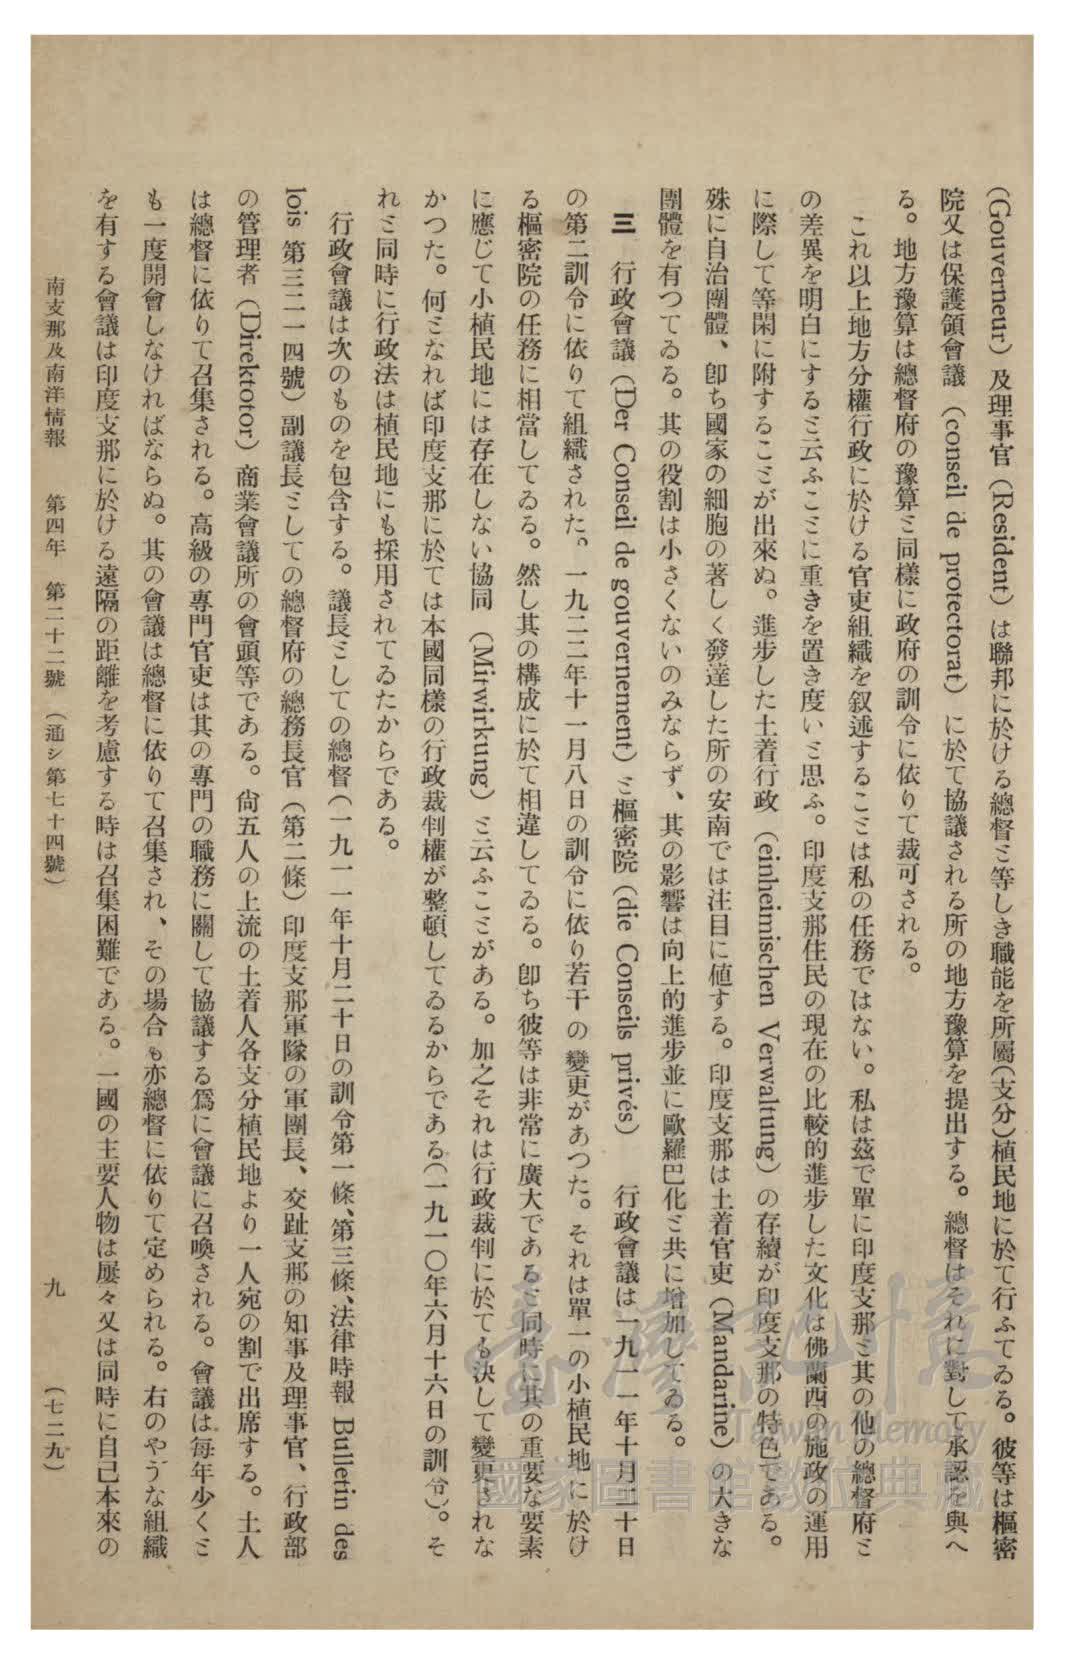 (Gouverneur) 及理事官 (Resident) は聯邦に於ける總督ミ等しき職能を所屬(支分)植民地に於て行ふてゐる。彼等は樞密
院又は保護領會議 (conseil de protectorat) に於て協議される所の地方豫算を提出する。總督はそれに對して承認を與へ
る。地方豫算は總督府の豫算ミ同樣に政府の訓令に依りて裁可される。
これ以上地方分權行政に於ける官吏組織を叙述するこミは私の任務ではない。私は茲で單に印度支那ミ其の他の總督府ミ
の差異を明白にするミ云ふこミに重きを置き度いミ思ふ。印度支那住民の現在の比較的進步した文化は佛蘭西の施政の運用
に際して等閑に附するこミが出來ぬ。進步した土着行政 (einheimischen Verwaltung) の存續が印度支那の特色である。
殊に自治團體、卽ち國家の細胞の著しく發達した所の安南では注目に値する。印度支那は土着官吏 (Mandarine) の大きな
團體を有つてゐる。其の役割は小さくないのみならず、其の影響は向上的進步並に歐羅巴化ミ共に增加してゐる。
三 行政會議 (Der Conseil de gouvernement) ミ樞密院 (die Conseils privés) 行政會議は一九一一年十月二十日
の第二訓令に依りて組織された。一九二二年十一月八日の訓令に依り若干の變更があつた。それは單一の小植民地に於け
る樞密院の任務に相當してゐる。然し其の構成に於て相違してゐる。卽ち彼等は非常に廣大であるミ同時に其の重要な要素
に應じて小植民地には存在しない協同 (Mitwirkung) ミ云ふこミがある。加之それは行政裁判に於ても決して變更されな
かつた。何ミなれば印度支那に於ては本國同樣の行政裁判權が整頓してゐるからである(一九一〇年六月十六日の訓令)。そ
れミ同時に行政法は植民地にも採用されてゐたからである。
行政會議は次のものを包含する。議長ミしての總督(一九一一年十月二十日の訓令第一條、第三條、法律時報 Bulletin des
lois 第三二一四號) 副議長ミしての總督府の總務長官 (第二條) 印度支那軍隊の軍團長、交趾支那の知事及理事官、行政部
の管理者 (Direktotor) 商業會議所の會頭等である。尙五人の上流の土着人各支分植民地より一人宛の割で出席する。土人
は總督に依りて召集される。高級の專門官吏は其の專門の職務に關して協議する爲に會議に召喚される。會議は每年少くミ
も一度開會しなければならぬ。其の會議は總督に依りて召集され、その場合も亦總督に依りて定められる。右のやうな組織
を有する會議は印度支那に於ける遠隔の距離を考慮する時は召集困難である。一國の主要人物は屢々又は同時に自己本來の
南支那及南洋情報 第四年 第二十二號 (通シ第七十四號) 九 (七二九)
臺灣記憶
Taiwan Memory
國家圖書館數位典藏